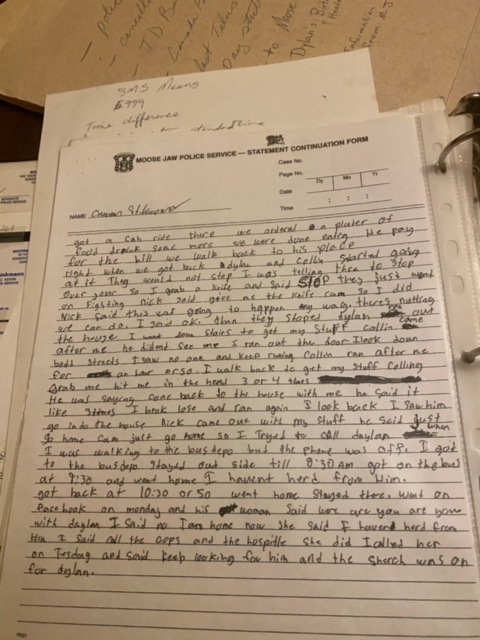 police
cancelled
TD Ba
Day
to Moose
Dylan's
Information
From M.J
SMS Means
$999
Time difference
MOOSE JAW POLICE SERVICE — STATEMENT CONTINUATION FORM
Case No.
Page No.
Dy Mo Yr
Date
Time : : :
NAME
got a cab ride there we ordered a plater of
food drink some more we were done eating He pay
for the bill we walk back to his place
right when we got back Dylan and Collin started going
at it They would not stop I was telling them to stop
over gave. So I grab a knife and said STOP they just
on Fighting Nick said give me the knife cam so I did
Nick said this was going to happen any way, theres nutting
we can do. I said ok. than they stoped dylan out
the house I want down stairs to get my stuff collin came
after me he didnt see me I ran out the door I look down
both streets I saw no one and keep runing Collin ran after me
for an haur or so. I walk back to get my stuff Colling
Grab me hit me in the head 3 or 4 times
He was saying come back to the house with me he said it
like 3 times I brok lose and ran again I look back I saw him
go into the house Nick came out with my stuff he said just
go home Cam just go home so I Tryed to call daylan when
I was walking to the bus depo but the phone was off. I got
to the bus depo stayed out side till 8:30 AM got on the bus
at 9:30 and went home I havent herd from Him.
got back at 10:30 or so went home stayed there. want on
facebook on monday and his woman said were are you are you
with daylan I said no I am home now she said I havent herd from
Him I said call the cops and the hospitle she did I called her
on Tesday and said keep looking for him and the sherch was on
for dylan.